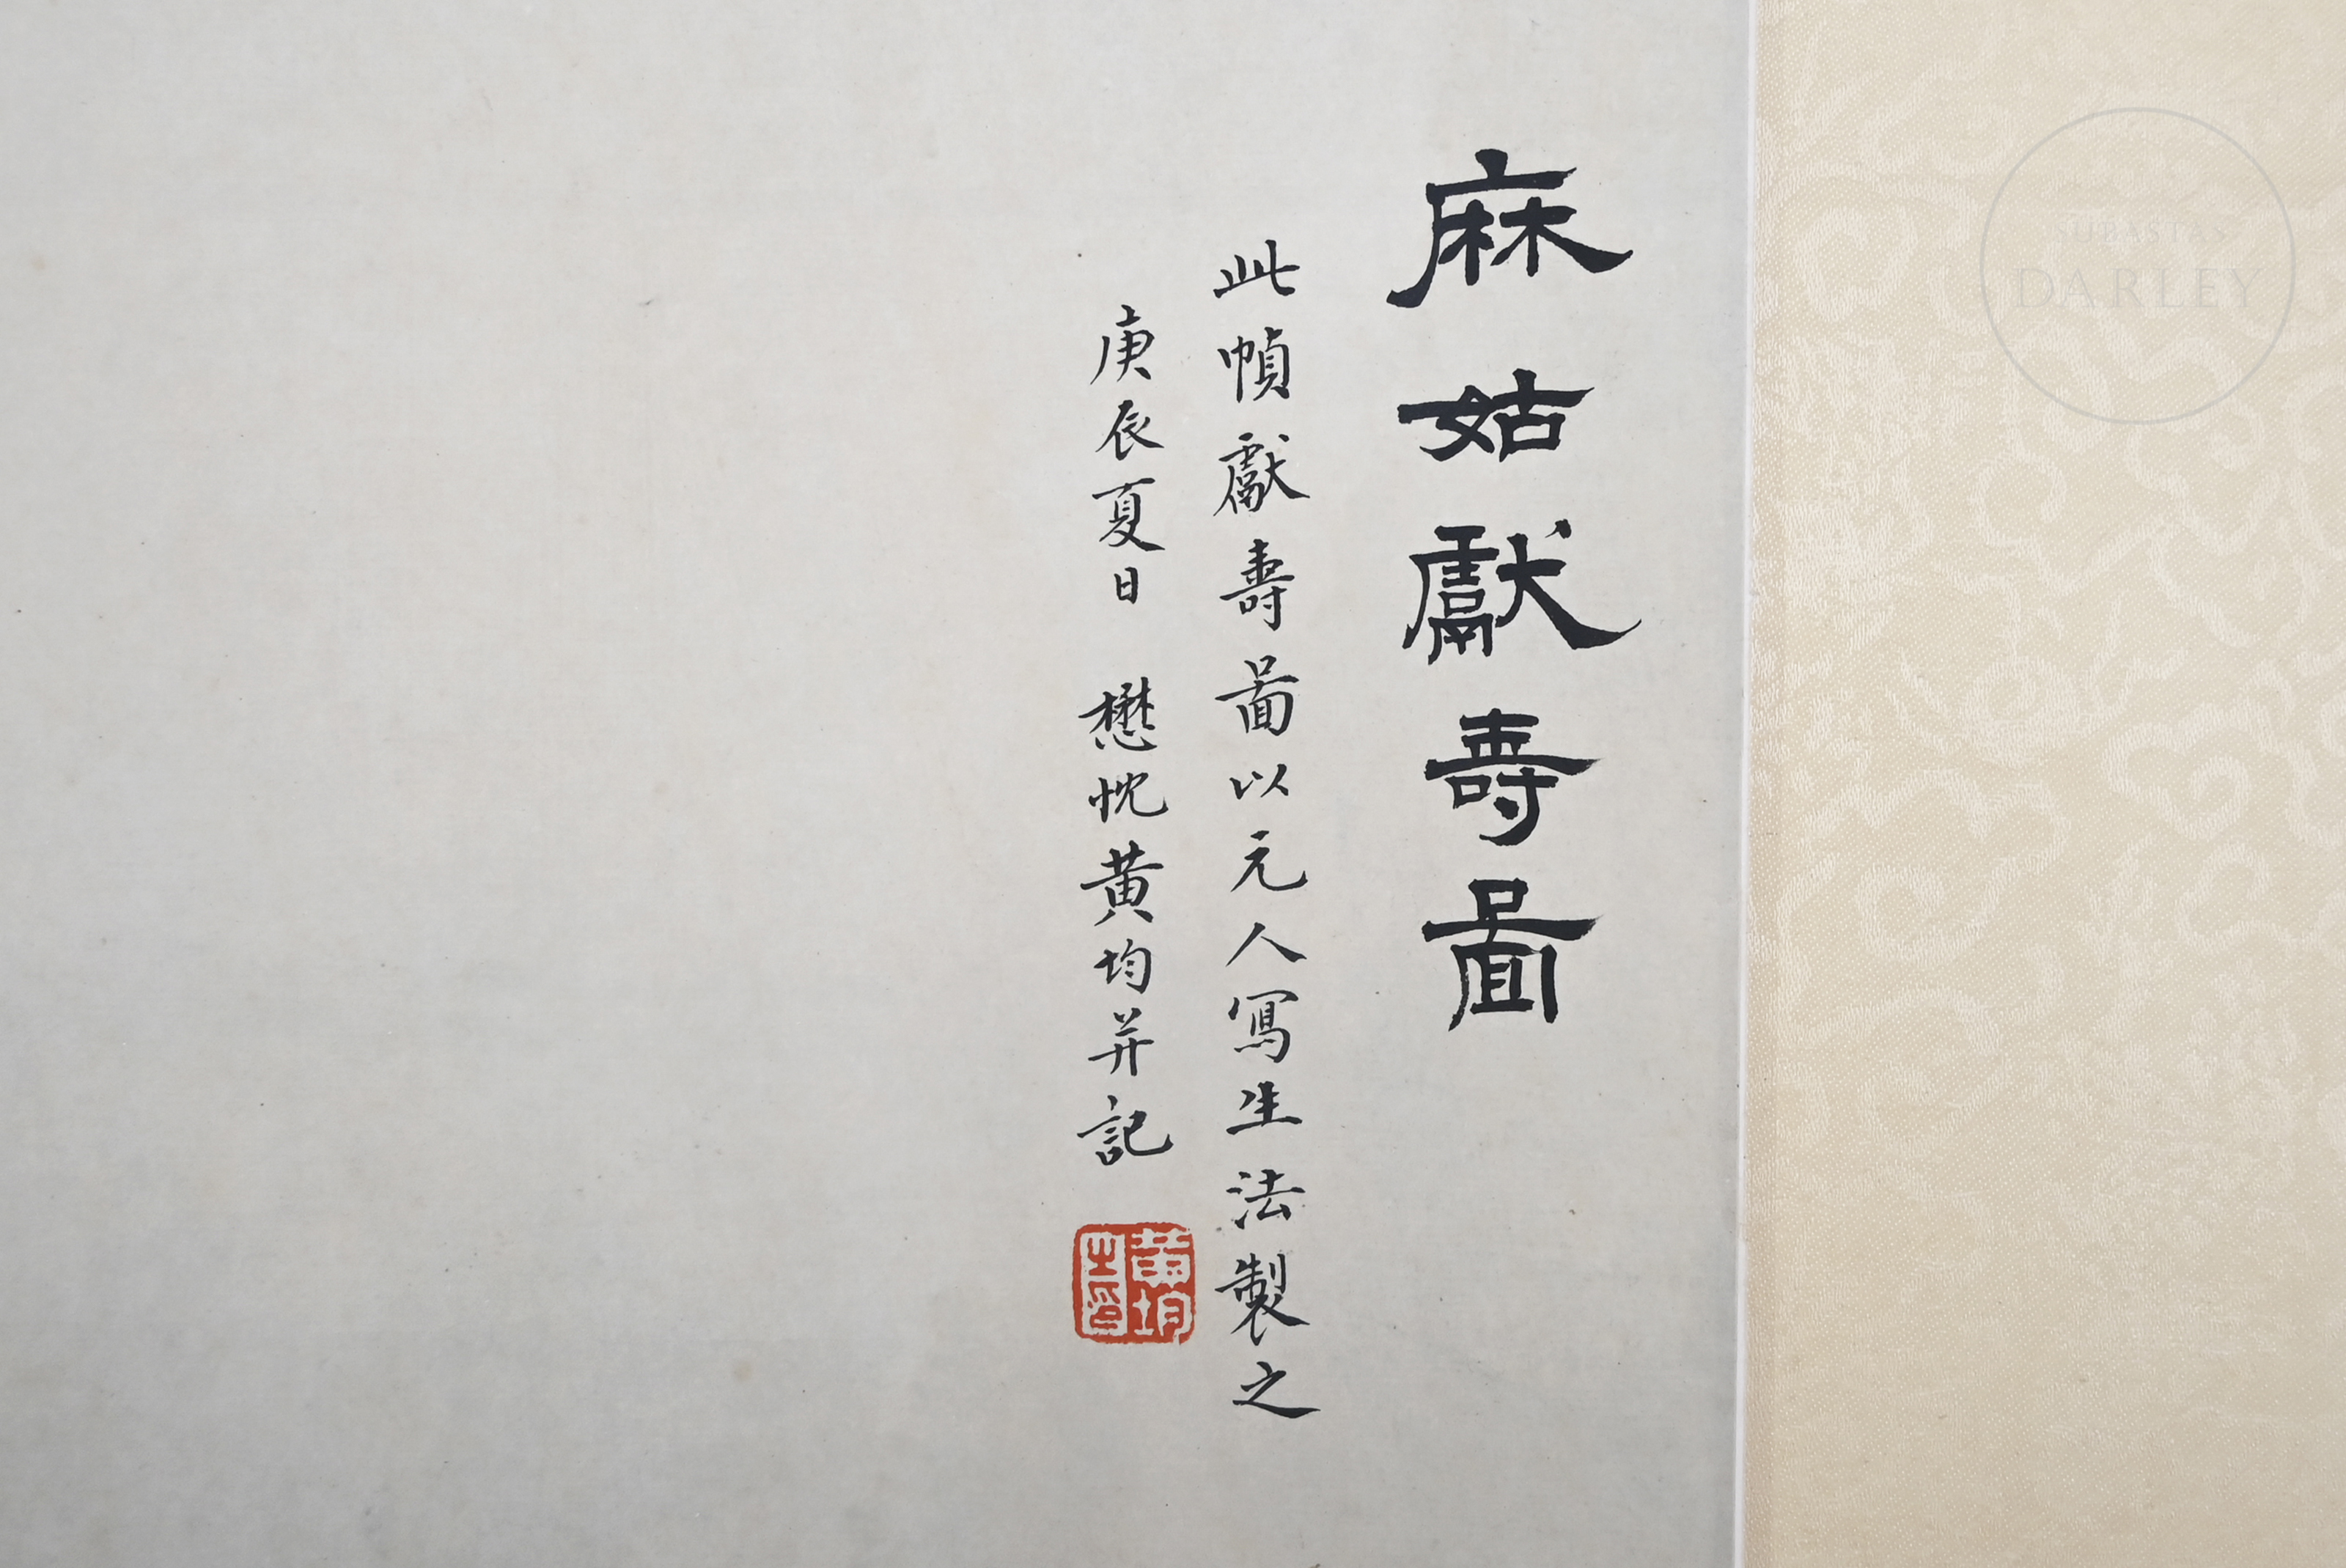 麻姑獻壽圖
此幀獻壽圖以元人寫生法製之
庚辰夏日 懋忱黃均并記
黃均之印
SUBASTAS
DARLEY